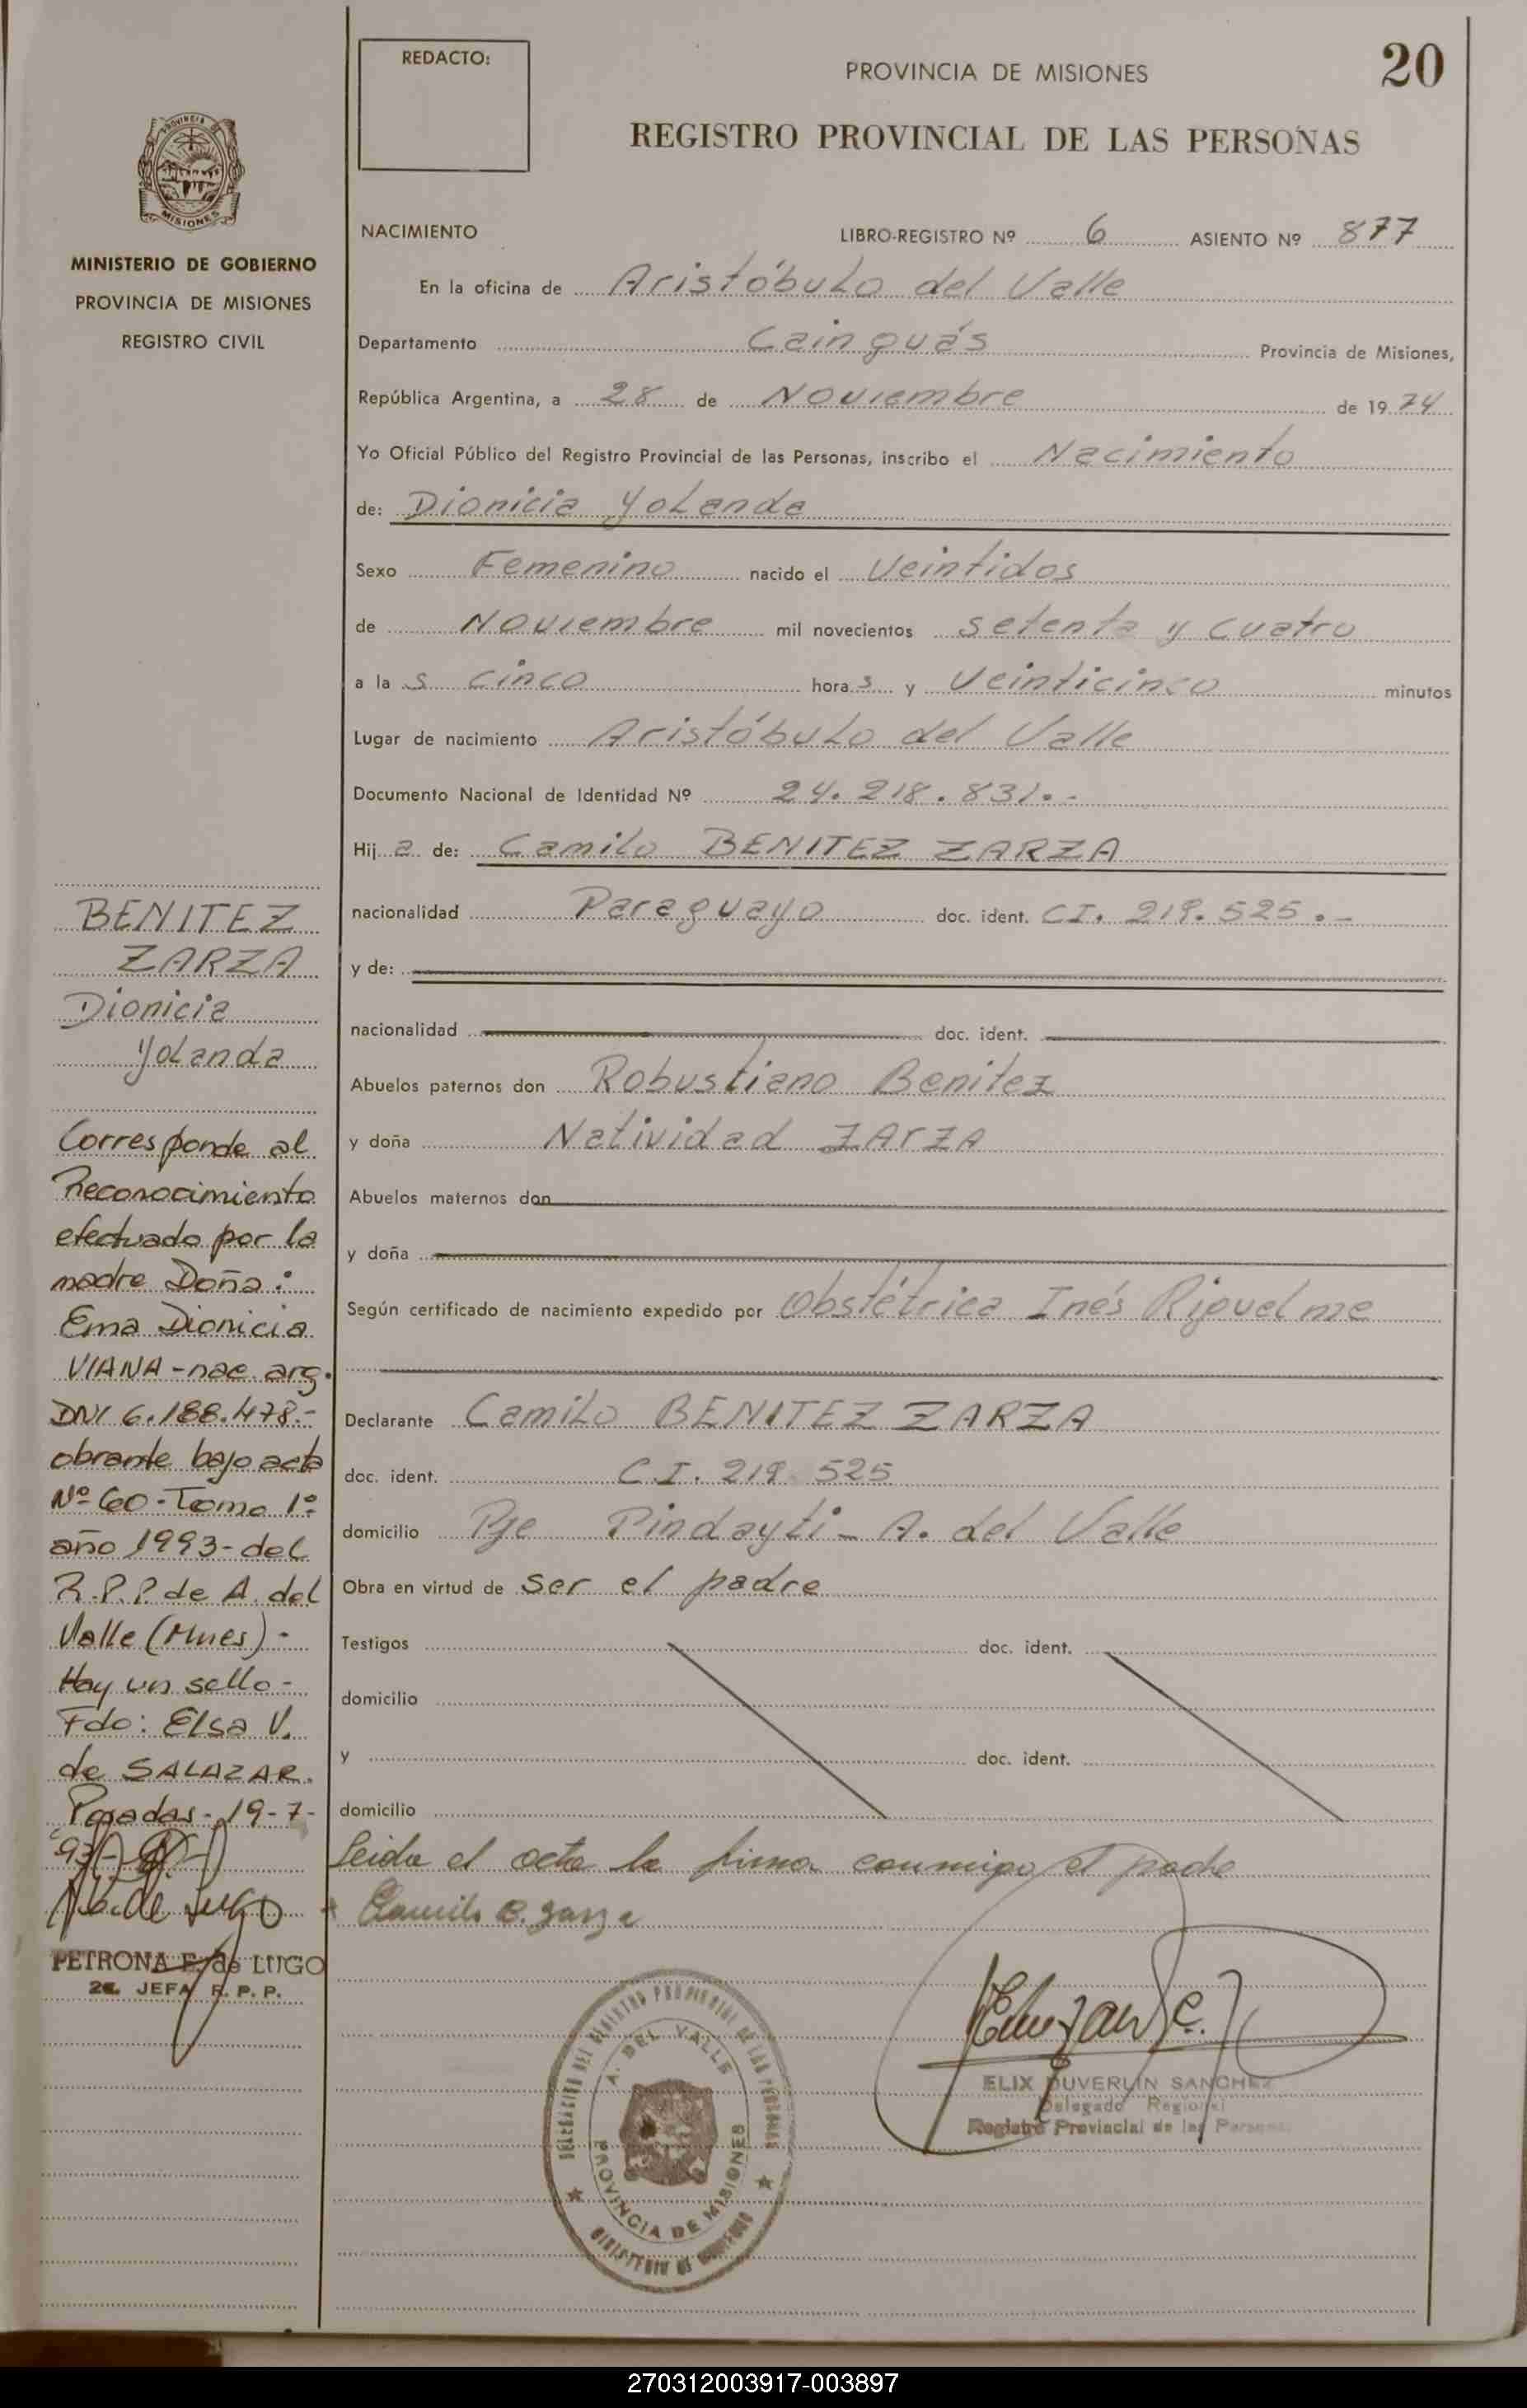 REDACTO:
PROVINCIA DE MISIONES
20
REGISTRO PROVINCIAL DE LAS PERSONAS
PROVINCIA DE
MISIONES
MINISTERIO DE GOBIERNO
PROVINCIA DE MISIONES
REGISTRO CIVIL
NACIMIENTO
LIBRO-REGISTRO Nº 6 ASIENTO Nº 877
En la oficina de Aristóbulo del Valle
Departamento Cainguás Provincia de Misiones,
República Argentina, a 28 de Noviembre de 1974
Yo Oficial Público del Registro Provincial de las Personas, inscribo el Nacimiento
de: Dionicia Yolanda
Sexo Femenino nacido el Veintidos
de Noviembre mil novecientos setenta y cuatro
a la s cinco hora s y Veinticinco minutos
Lugar de nacimiento Aristóbulo del Valle
Documento Nacional de Identidad Nº 24.218.831.-
Hij a de: Camilo BENITEZ ZARZA
nacionalidad Paraguayo doc. ident. CI. 219.525.-
y de:
nacionalidad doc. ident.
Abuelos paternos don Robustiano Benitez
y doña Natividad ZArZA
Abuelos maternos don
y doña
Según certificado de nacimiento expedido por Obstétrica Inés Riquelme
Declarante Camilo BENITEZ ZARZA
doc. ident. C.I. 219.525
domicilio Pje Pindayti - A. del Valle
Obra en virtud de ser el padre
Testigos doc. ident.
domicilio
y doc. ident.
domicilio
Leida el acta la firma conmigo el padre
Camilo B. Zarza
BENITEZ
ZARZA
Dionicia
Yolanda
Corresponde al
Reconocimiento
efectuado por la
madre Doña:
Ema Dionicia
VIANA - nac. arg.
DNI 6.188.478.-
obrante bajo acta
Nº 60 - Tomo 1º
año 1993 - del
R.P.P. de A. del
Valle (Mnes) -
Hay un sello -
Fdo: Elsa V.
de SALAZAR.
Posadas - 19-7-
93
de Lugo
PETRONA E. de LUGO
2a. JEFA R. P. P.
DELEGACION DEL REGISTRO PROVINCIAL DE LAS PERSONAS
A. DEL VALLE
PROVINCIA DE MISIONES
MINISTERIO DE GOBIERNO
ELIX DUVERLIN SANCHEZ
Delegado Regional
Registro Provincial de las Personas
270312003917-003897